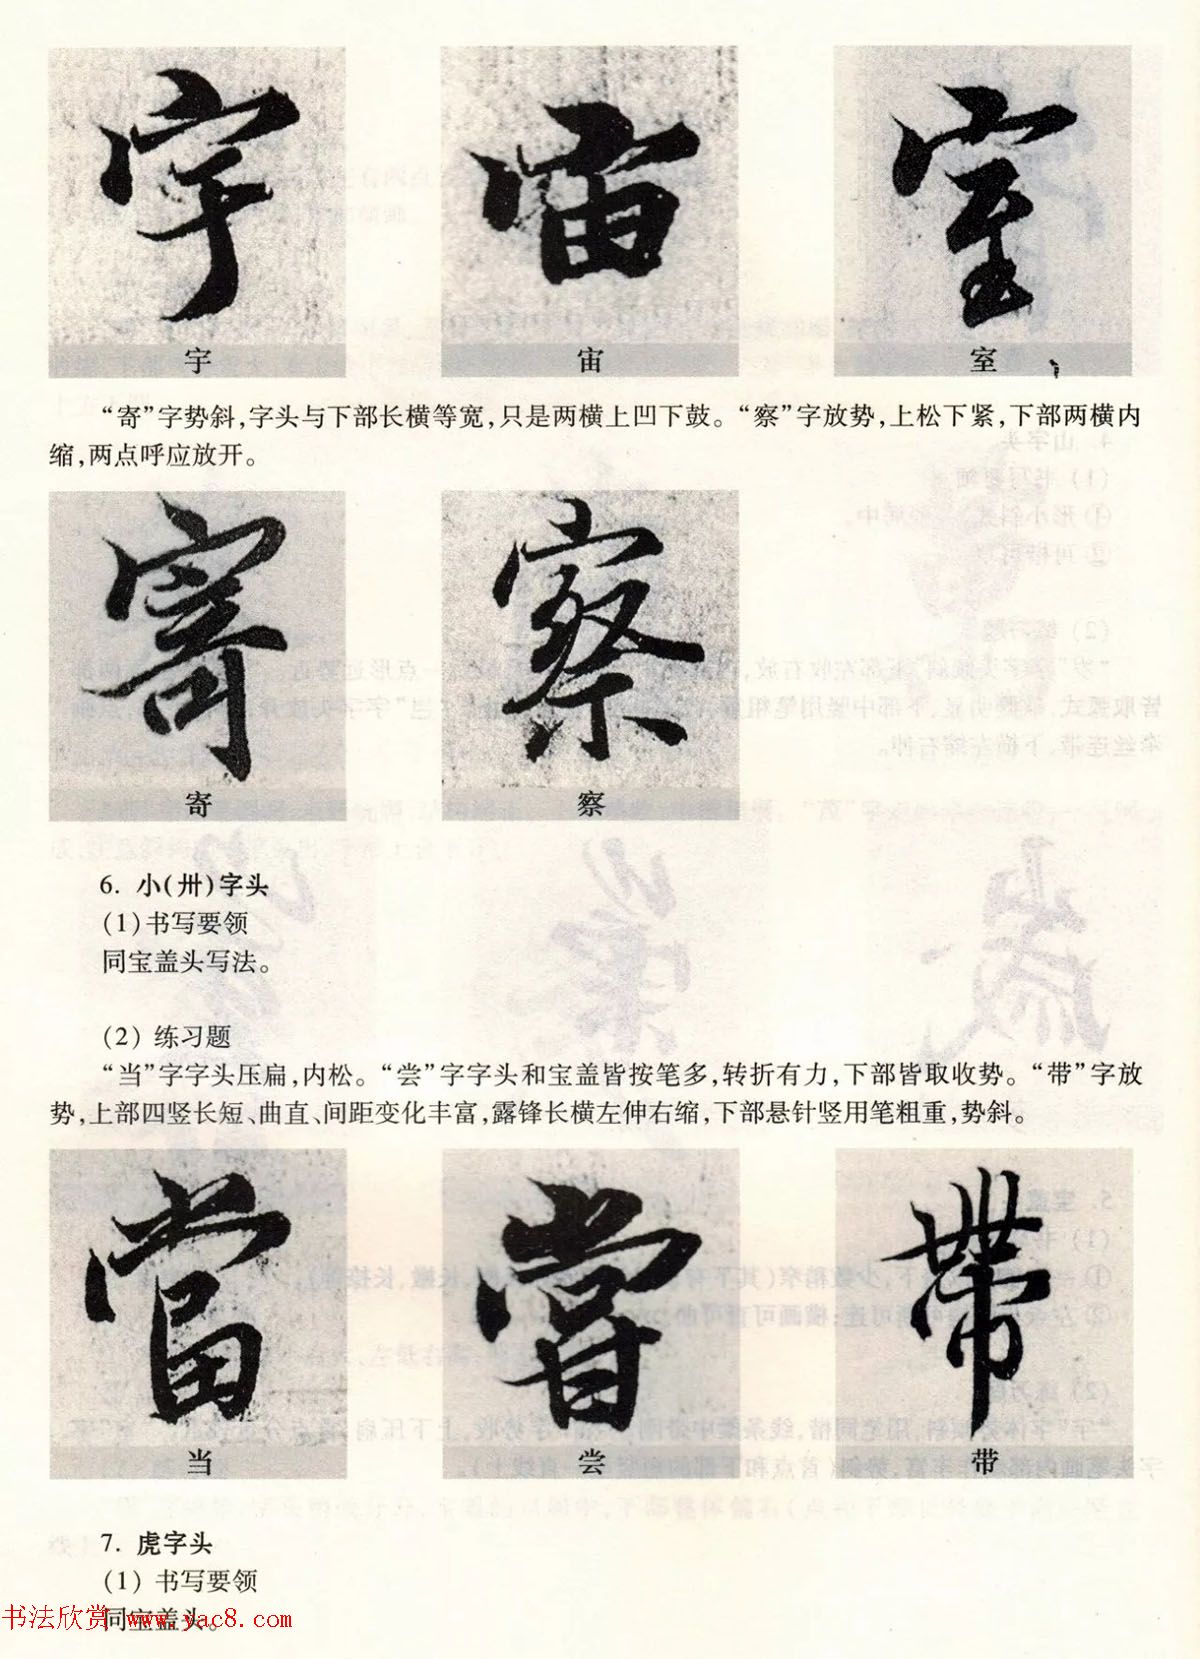 宇 宙 室
宇 宙 室
“寄”字势斜,字头与下部长横等宽,只是两横上凹下鼓。“察”字放势,上松下紧,下部两横内
缩,两点呼应放开。
寄 察
寄 察
6. 小(卅)字头
(1)书写要领
同宝盖头写法。
(2) 练习题
“当”字字头压扁,内松。“尝”字字头和宝盖皆按笔多,转折有力,下部皆取收势。“带”字放
势,上部四竖长短、曲直、间距变化丰富,露锋长横左伸右缩,下部悬针竖用笔粗重,势斜。
當 嘗 帶
当 尝 带
7. 虎字头
(1) 书写要领
同宝盖头。
书法欣赏 www.yac8.com